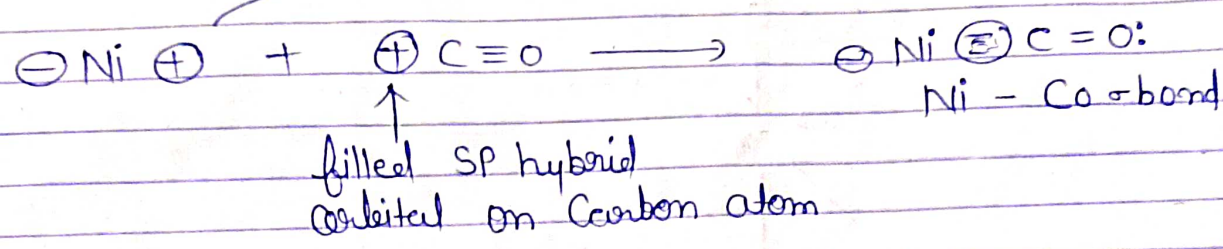 ⊖ Ni ⊕ + ⊕ C ≡ O ⟶ ⊖ Ni ⊜ C = O:
Ni – Co σ bond
↑
filled SP hybrid
orbital on Carbon atom